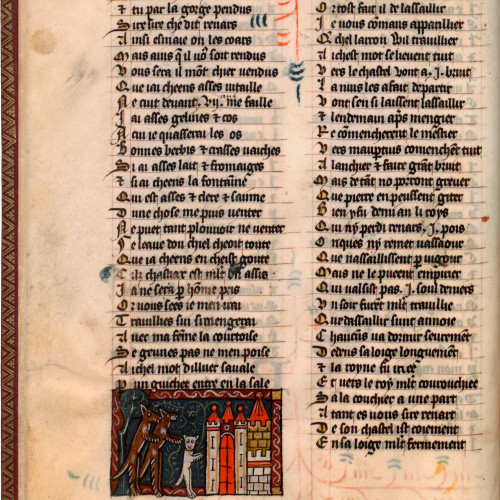 & tu par la gorge pendus
Sire lire che dit renars
Ainsi esmaie on les coars
Mais ains q̃ il uo᷒ soit rendus
Vous sera il mo̅t chier vendus
Que iai cheens asses uitaille
Ne cuit deuant .vij. me faille
Iai asses gelines & cos
A cui ie quasserai les os
Bonnes berbis & crasses uaches
Si ai asses lait & fromaiges
& si ai cheens la fontaine
Qui est asses & clere & saine
Dune chose me puis uenter
Ne puet tant plouuoir ne uenter
Se leaue dou chiel cheoit toute
Que ia cheens en cheist goute
Cilz chastiax est mlt̃ bn̅ assis
Ia ne sera ꝑ ho̅me pris
Or uous sees ie men uai
Trauillies sui si mengerai
Auec ma fe̅me la courtoise
Se greues pas ne men poise
A ichel mot diluec sauale
P un guichet entre en la sale
O rost fait il de lassaillir
Ie uous co̅mans apparillier
A ichest mot se lieuent tuit
Vers le chastel uont a .j. bruit
Ia nuis les a fait departir
Vont sen si laissent lassaillir
& lendemain ap̃s mengier
Re co̅mencherent le mestier
Vers maupertus comenche̅t tuit
A lanchier & faire gra̅t bruit
Mais de ta̅t no porront greuer
Que pierre en peussent giter
Bien y fu demi an li roys
Qui ny perdi renars .j. pois
Onques ny remet nassaour
Que nassaillissent ꝑ uigour
Mais ne le pueent empirier
Qui ualsist pas .j. soul deniers
Vn soir fure̅t mlt̃ trauillie
Qur dassaillir sunt annoie
Chascuns ua dormir seurement
Dedens sa loige longuement
& la royne fu iree
Et uers le roy mlt̃ courouchee
Sala couchier a une part
A tant es uous sire renart
De son chastel ist coiement
En sa loige mlt̃ fierement